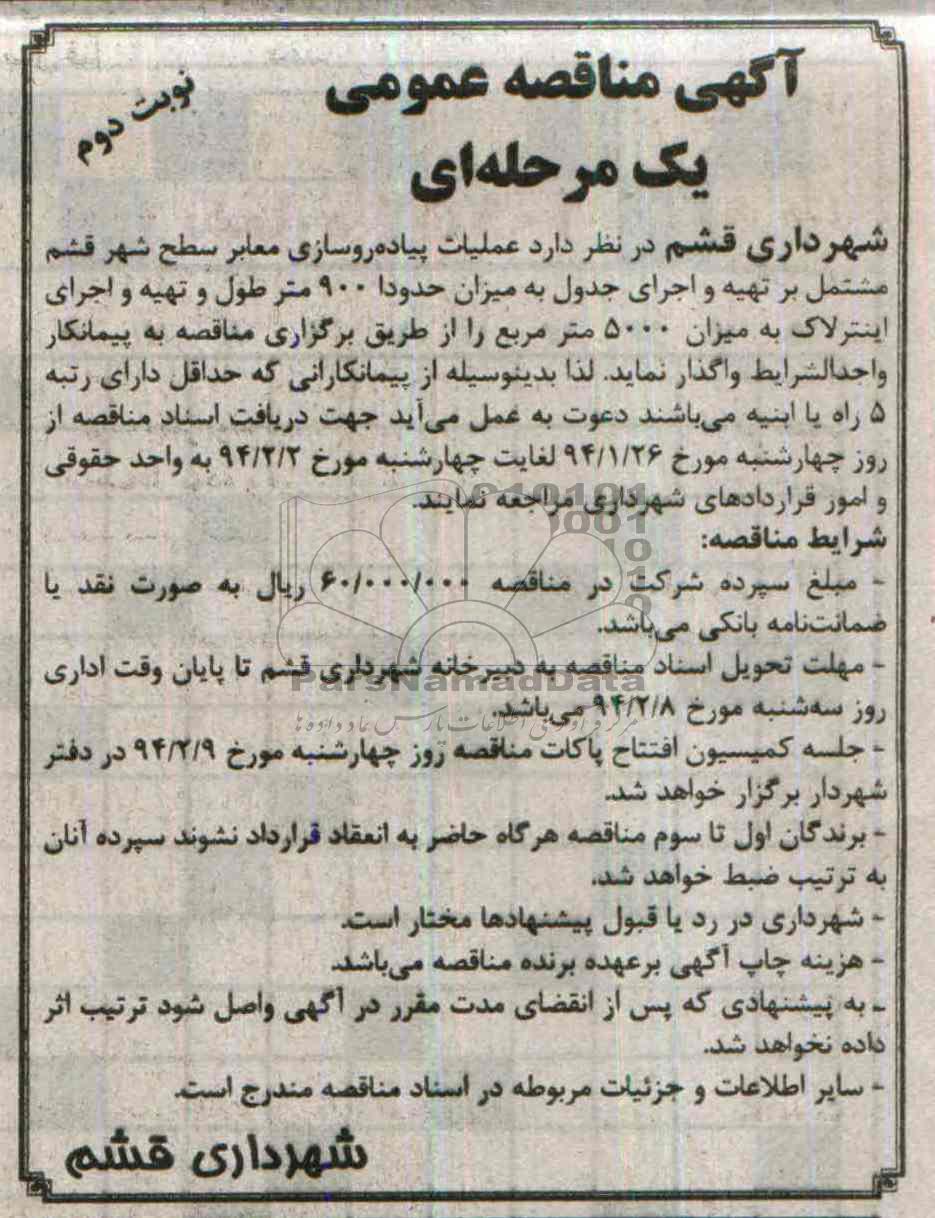 آگهی مناقصه عمومی
نوبت دوم
یک مرحله‌ای
شهرداری قشم در نظر دارد عملیات پیاده‌روسازی معابر سطح شهر قشم
مشتمل بر تهیه و اجرای جدول به میزان حدودا ۹۰۰ متر طول و تهیه و اجرای
اینترلاک به میزان ۵۰۰۰ متر مربع را از طریق برگزاری مناقصه به پیمانکار
واجدالشرایط واگذار نماید. لذا بدینوسیله از پیمانکارانی که حداقل دارای رتبه
۵ راه یا ابنیه می‌باشند دعوت به عمل می‌آید جهت دریافت اسناد مناقصه از
روز چهارشنبه مورخ ۹۴/۱/۲۶ لغایت چهارشنبه مورخ ۹۴/۲/۲ به واحد حقوقی
و امور قراردادهای شهرداری مراجعه نمایند.
شرایط مناقصه:
- مبلغ سپرده شرکت در مناقصه ۶۰/۰۰۰/۰۰۰ ریال به صورت نقد یا
ضمانت‌نامه بانکی می‌باشد.
- مهلت تحویل اسناد مناقصه به دبیرخانه شهرداری قشم تا پایان وقت اداری
ParsNamadData
روز سه‌شنبه مورخ ۹۴/۲/۸ می‌باشد.
- جلسه کمیسیون افتتاح پاکات مناقصه روز چهارشنبه مورخ ۹۴/۲/۹ در دفتر
شهردار برگزار خواهد شد.
- برندگان اول تا سوم مناقصه هرگاه حاضر به انعقاد قرارداد نشوند سپرده آنان
به ترتیب ضبط خواهد شد.
- شهرداری در رد یا قبول پیشنهادها مختار است.
- هزینه چاپ آگهی برعهده برنده مناقصه می‌باشد.
ـ به پیشنهادی که پس از انقضای مدت مقرر در آگهی واصل شود ترتیب اثر
داده نخواهد شد.
- سایر اطلاعات و جزئیات مربوطه در اسناد مناقصه مندرج است.
شهرداری قشم